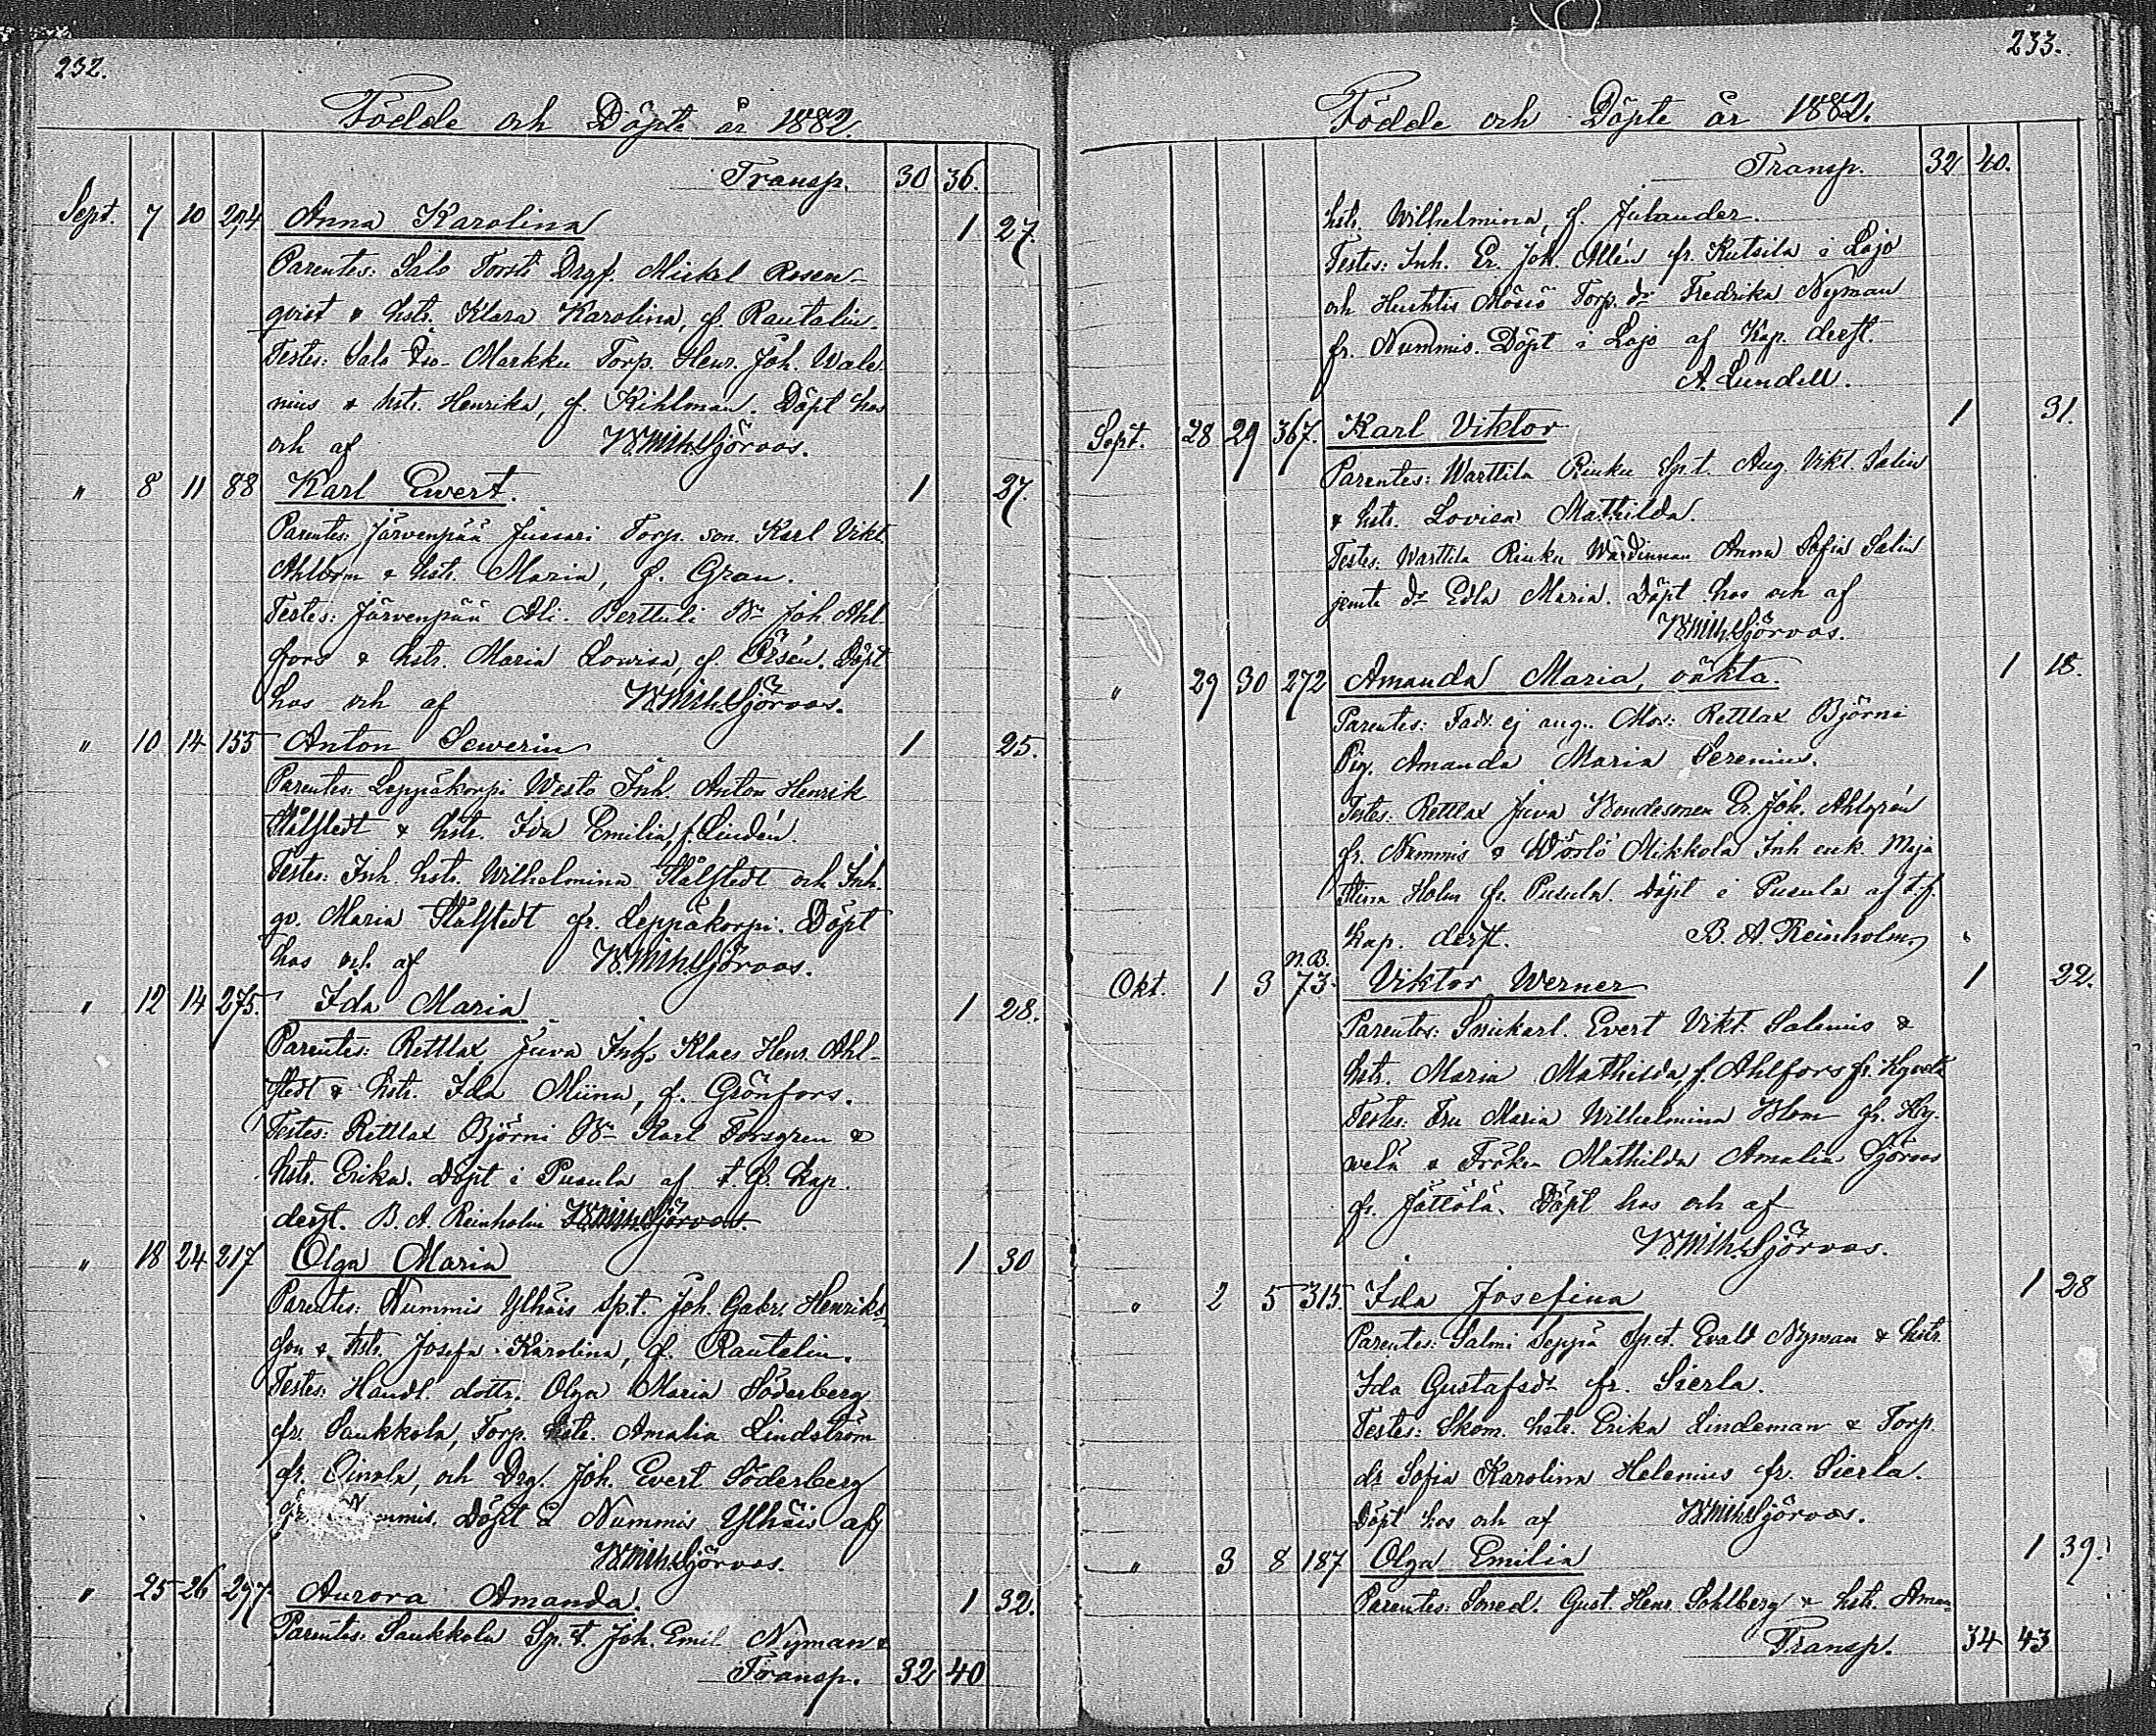 232.
Födde och Döpte år 1882
Transp. 30 36.
Sept. 7 10 294 Anna Karolina 1 27.
Parentes: Salo Torsti Drgf. Mickel Rosen-
qvist & hstr. Klara Karolina, f. Rautalin.
Testes: Salo Iso-Markku Torp. Henr. Joh. Wale-
nius & hstr. Henrika, f. Kihlman. Döpt hos
och af Sjöroos.
" 8 11 88 Karl Ewert. 1 27.
Parentes: Järvenpää Jussari Torp. son Karl Vikt.
& hstr. Maria, f. Gran.
Testes: Järvenpää Ali-Perttuli Bn Joh. Ahl-
fors & hstr. Maria Lowisa, f. Örsén. Döpt
hos och af Sjöroos.
" 10 14 155 Anton Sewerin 1 25.
Parentes: Leppäkorpi Westo Inh. Anton Henrik
Stålstedt & hstr. Ida Emilia, f. Lindén.
Testes: Inh. hstr. Wilhelmina Stålstedt och Inh.
go. Maria Stålstedt fr. Leppäkorpi. Döpt
hos och af Sjöroos.
" 12 14 275. Ida Maria 1 28.
Parentes: Rettlax Juva Inhs Klaes Henr. Ahl-
stedt & hstr. Ida Miina, f. Grönfors.
Testes: Rettlax Björni Bn Karl Forsgren &
hstr. Erika. Döpt i Pusula af t.f. kap.
derst. B. A. Reinholm Sjöroos.
" 18 24 217 Olga Maria 1 30
Parentes: Nummis Ylhäis Sp.t. Joh. Gabr. Henriks-
son & hstr. Josefa Karolina, f. Rautelin.
Testes: Handl. dottr. Olga Maria Söderberg
fr. Saukkola, Torp. hstr. Amalia Lindström
fr. Oinola, och Drg. Joh. Evert Söderberg
fr. Nummis. Döpt å Nummis Ylhäis af
Sjöroos.
" 25 26 297. Aurora Amanda. 1 32.
Parentes: Saukkola Sp.t. Joh. Emil Nyman &
Transp. 32 40
233.
Födde och Döpte år 1882.
Transp. 32 40.
hstr. Wilhelmina, f. Julander.
Testes: Inh. Er. Joh. Allén fr. Kutsila i Lojo
och Huhtis Torp. dr Fredrika Nyman
fr. Nummis. Döpt i Lojo af Kap. derst.
A. Lundell.
Sept. 28 29 367. Karl Viktor 1 31.
Parentes: Warttila Rinku Sp.t. Aug. Vikt. Salin
& hstr. Lovisa Mathilda.
Testes: Warttila Rinku Wärdinnan Anna Sofia Salin
jemte dr Edla Maria. Döpt hos och af
Sjöroos.
" 29 30 272 Amanda Maria, oäkta. 1 18.
Parentes: Fadr. ej ang. Mor: Rettlax Björni
Pig. Amanda Maria Serenius.
Testes: Rettlax Juva Bondesonen Er. Joh. Ahlgrén
fr. Nummis & Wörlö Mikkola Inh enk. Maja
Stina Holm fr. Pusula. Döpt i Pusula af t.f.
Kap. derst. B. A. Reinholm.
N.B.
Okt. 1 3 73. Viktor Werner 1 22.
Parentes: Snickarl. Evert Vikt. Salenius &
hstr. Maria Mathilda, f. Ahlfors fr. Hyvelä
Testes: Fru Maria Wilhelmina Blom fr. Hy-
velä & Fröken Mathilda Amalia Sjöroos
fr. Jättölä. Döpt hos och af
Sjöroos.
" 2 5 315. Ida Josefina 1 28
Parentes: Salmi Seppä Sp.t. Evald Nyman & hstr.
Ida Gustafsdr fr. Sierla.
Testes: Skom. hstr. Erika Lindeman & Torp.
dr Sofia Karolina Helenius fr. Sierla.
Döpt hos och af Sjöroos.
" 3 8 187 Olga Emilia 1 39.
Parentes: Smed. Gust. Henr. Sohlberg & hstr. Aman-
Transp. 34 43